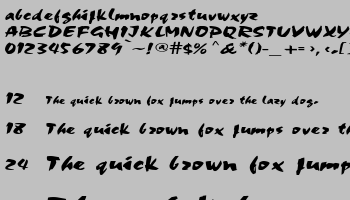 abcdefghijklmnopqrstuvwxyz
ABCDEFGHIJKLMNOPQRSTUVWXY
0123456789`~!@#$%^&*()-_+=>,<.[
12 The quick brown fox jumps over the lazy dog.
18 The quick brown fox jumps over th
24 The quick brown fox jump